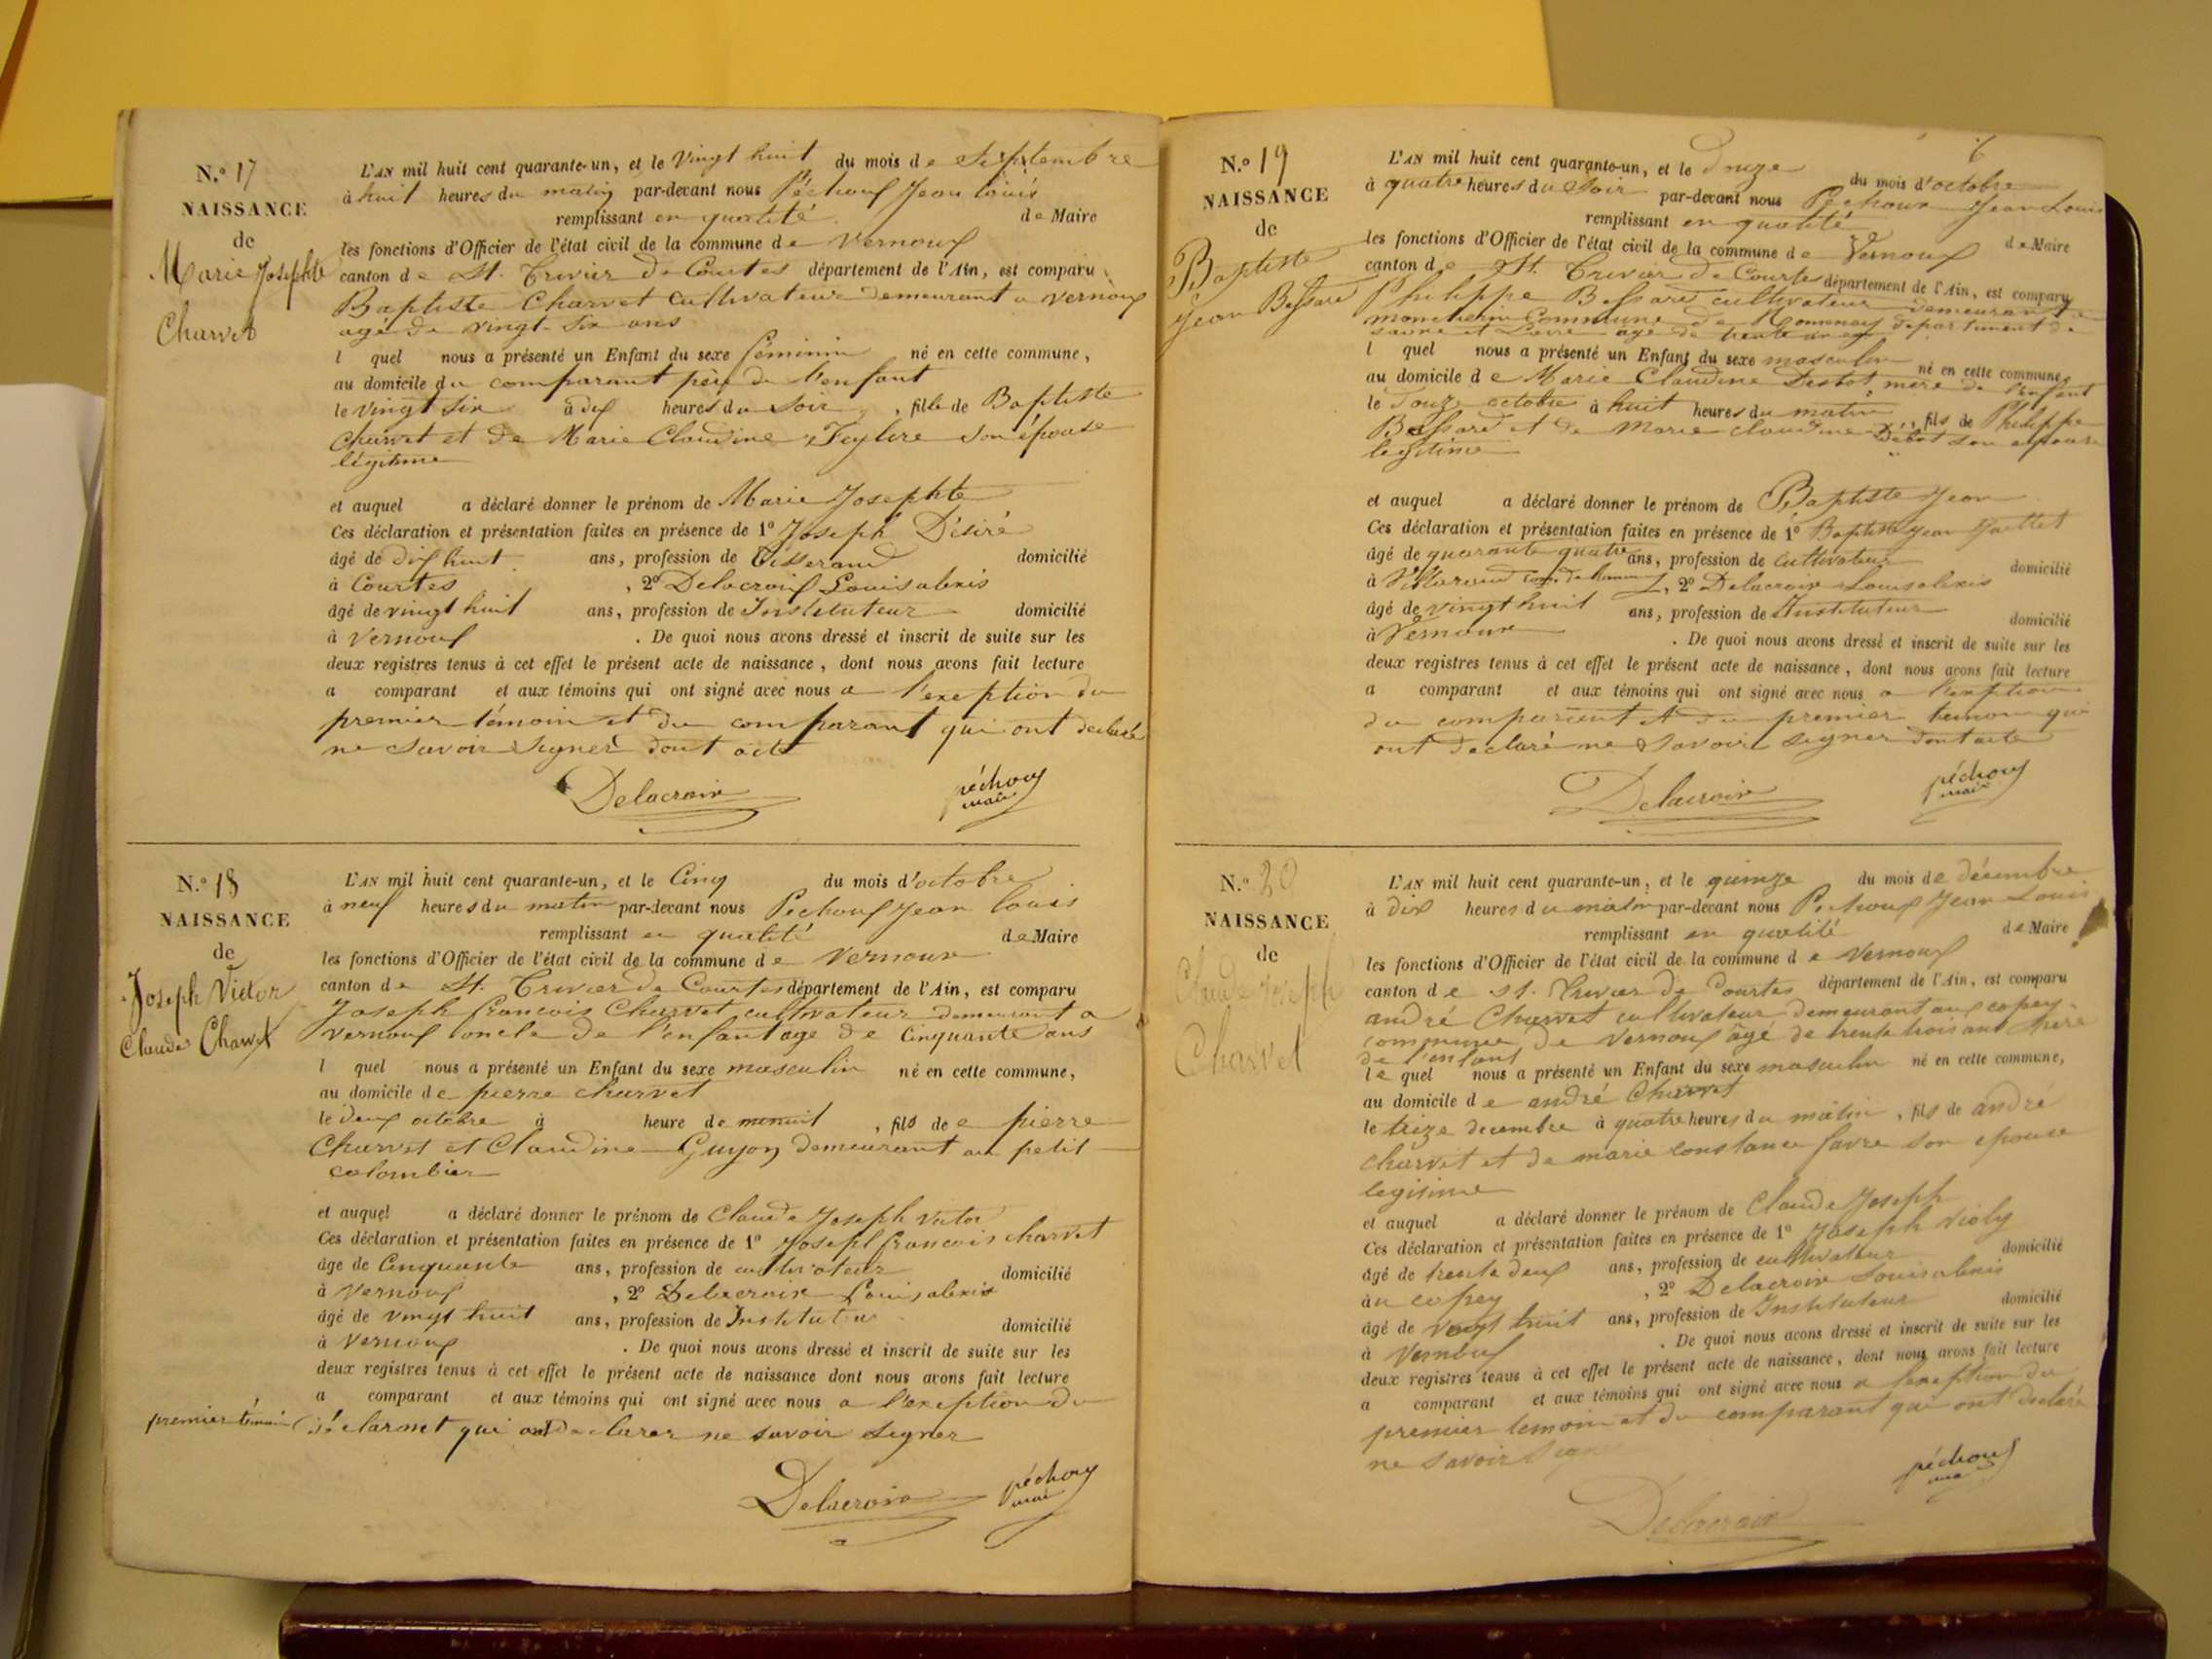 N.º 17
NAISSANCE
de
Marie Josephte
Charvet
L'AN mil huit cent quarante-un, et le Vingt huit du mois de Septembre
à huit heures du matin par-devant nous Péchoux Jean louis
remplissant en qualité de Maire
les fonctions d'Officier de l'état civil de la commune de Vernoux
canton de St. Trivier de Courtes département de l'Ain, est comparu
Baptiste Charvet Cultivateur demeurant a vernoux
agé de vingt-six ans
l quel nous a présenté un Enfant du sexe féminin né en cette commune,
au domicile du comparant père de l'enfant
le vingt six à dix heures du soir, fille de Baptiste
charvet et de Marie Claudine son épouse
légitime
et auquel a déclaré donner le prénom de Marie Josephte
Ces déclaration et présentation faites en présence de 1º Joseph Désiré
âgé de dix huit ans, profession de tisserand domicilié
à Courtes, 2º Delacroix Louis alexis
âgé de vingt huit ans, profession de Instituteur domicilié
à Vernoux. De quoi nous avons dressé et inscrit de suite sur les
deux registres tenus à cet effet le présent acte de naissance, dont nous avons fait lecture
a comparant et aux témoins qui ont signé avec nous a l'exeption du
premier témoin et du comparant qui ont declaré
ne savoir signer dont acte
Delacroix péchoux
maire
N.º 18
NAISSANCE
de
Joseph Victor
Claude Charvet
L'AN mil huit cent quarante-un, et le Cinq du mois d'octobre
à neuf heures du matin par-devant nous Péchoux Jean louis
remplissant en qualité de Maire
les fonctions d'Officier de l'état civil de la commune de Vernoux
canton de St. Trivier de Courtes département de l'Ain, est comparu
Joseph francois Charvet cultivateur demeurant a
vernoux oncle de l'enfant age de Cinquante ans
l quel nous a présenté un Enfant du sexe masculin né en cette commune,
au domicile de pierre charvet
le deux octobre à heure de minuit, fils de pierre
Charvet et Claudine Guyon demeurant au petit
colombier
et auquel a déclaré donner le prénom de Claude Joseph Victor
Ces déclaration et présentation faites en présence de 1º Joseph francois charvet
âge de Cinquante ans, profession de cultivateur domicilié
à Vernoux, 2º Delacroix Louis alexis
âgé de vingt huit ans, profession de Instituteur domicilié
à Vernoux. De quoi nous avons dressé et inscrit de suite sur les
deux registres tenus à cet effet le présent acte de naissance dont nous avons fait lecture
a comparant et aux témoins qui ont signé avec nous a l'exeption du
premier témoin qui ont declarer ne savoir signer
Delacroix péchoux
maire
6
N.º 19
NAISSANCE
de
Baptiste
Jean Bessard
L'AN mil huit cent quarante-un, et le douze du mois d'octobre
à quatre heures du Soir par-devant nous Péchoux Jean Louis
remplissant en qualité de Maire
les fonctions d'Officier de l'état civil de la commune de Vernoux
canton de St. Trivier de Courtes département de l'Ain, est comparu
Philippe Bessard cultivateur demeurant a
Commune de Romenay departement de
saone et Loire age de trente
l quel nous a présenté un Enfant du sexe masculin né en cette commune,
au domicile de Marie Claudine mere de l'enfant
le douze octobre à huit heures du matin, fils de Philippe
Bessard et de Marie claudine son epouse
legitime
et auquel a déclaré donner le prénom de Baptiste Jean
Ces déclaration et présentation faites en présence de 1º Baptiste Jean
âgé de quarante quatre ans, profession de cultivateur domicilié
à, 2º Delacroix Louis alexis
âgé de vingt huit ans, profession de Instituteur domicilié
à Vernoux. De quoi nous avons dressé et inscrit de suite sur les
deux registres tenus à cet effet le présent acte de naissance, dont nous avons fait lecture
a comparant et aux témoins qui ont signé avec nous a l'exeption
du comparant et du premier temoin qui
ont declaré ne savoir signer dont acte
Delacroix péchoux
maire
N.º 20
NAISSANCE
de
Claude Joseph
Charvet
L'AN mil huit cent quarante-un, et le quinze du mois de décembre
à dix heures du matin par-devant nous Péchoux Jean Louis
remplissant en qualité de Maire
les fonctions d'Officier de l'état civil de la commune de Vernoux
canton de St. Trivier de Courtes département de l'Ain, est comparu
andré Charvet cultivateur demeurant au copey
commune de Vernoux âgé de trente trois ans pere
de l'enfant
le quel nous a présenté un Enfant du sexe masculin né en cette commune,
au domicile de andré Charvet
le treize decembre à quatre heures du matin, fils de andré
charvet et de marie constance favre son epouse
legitime
et auquel a déclaré donner le prénom de Claude Joseph
Ces déclaration et présentation faites en présence de 1º Joseph Violy
âgé de trente deux ans, profession de cultivateur domicilié
au copey, 2º Delacroix Louis alexis
âgé de vingt huit ans, profession de Instituteur domicilié
à Vernoux. De quoi nous avons dressé et inscrit de suite sur les
deux registres tenus à cet effet le présent acte de naissance, dont nous avons fait lecture
a comparant et aux témoins qui ont signé avec nous a l'exeption du
premier temoin et du comparant qui ont declaré
ne savoir signer
Delacroix péchoux
maire